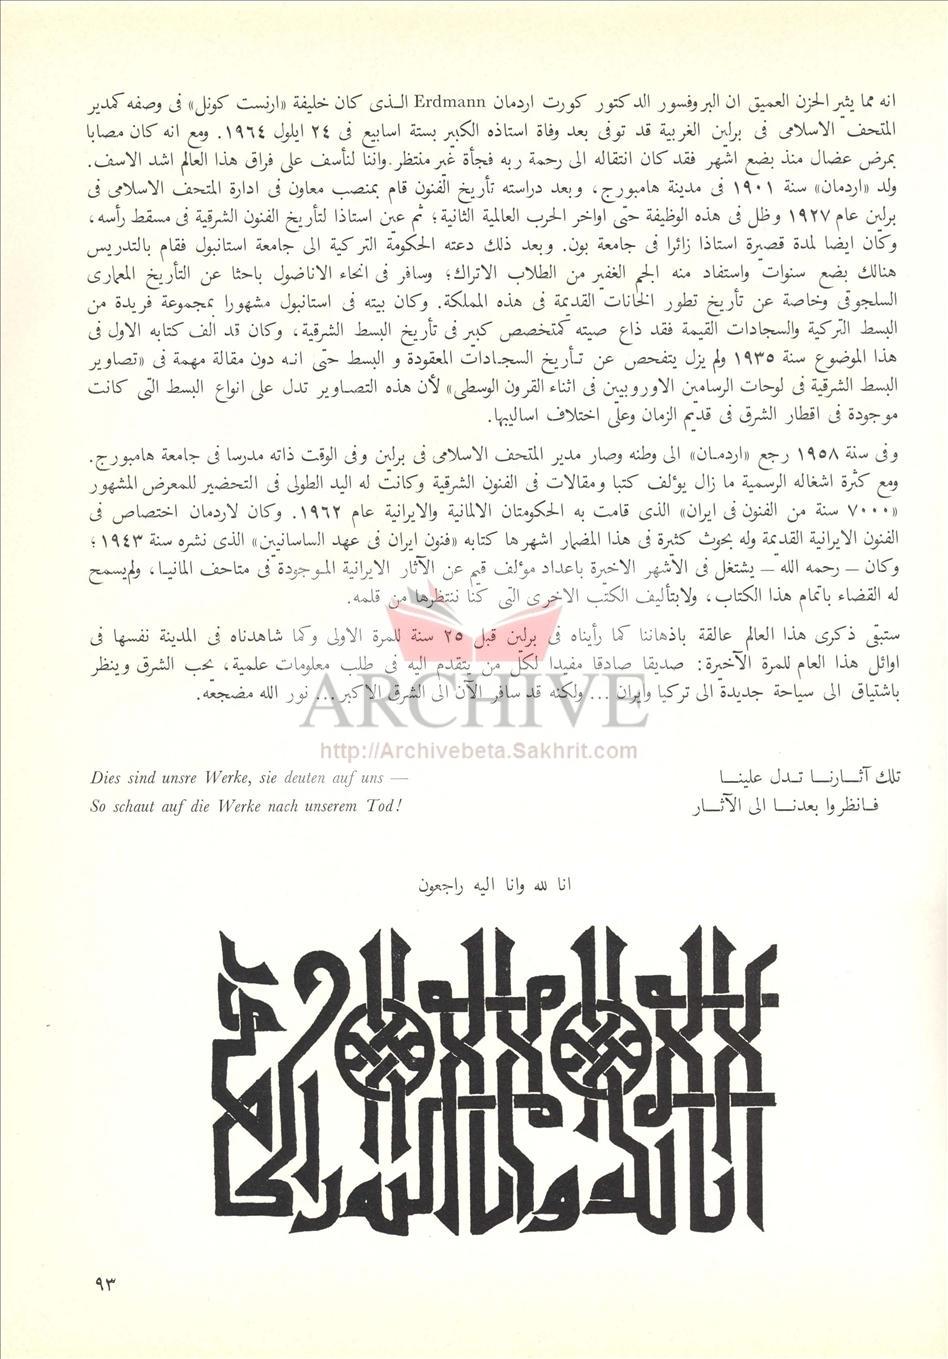 انه مما يثير الحزن العميق ان البروفسور الدكتور كورت اردمان Erdmann الـذى كان خليفة «ارنست كونل» فى وصفه كمدير
المتحف الاسلامى فى برلين الغربية قد توفى بعد وفاة استاذه الكبير بستة اسابيع فى ٢٤ ايلول ١٩٦٤. ومع انه كان مصابا
بمرض عضال منذ بضع اشهر فقد كان انتقاله الى رحمة ربه فجأة غير منتظر. واننا لنأسف على فراق هذا العالم اشد الاسف.
ولد «اردمان» سنة ١٩٠١ فى مدينة هامبورج، وبعد دراسته تأريخ الفنون قام بمنصب معاون فى ادارة المتحف الاسلامى فى
برلين عام ١٩٢٧ وظل فى هذه الوظيفة حتى اواخر الحرب العالمية الثانية؛ ثم عين استاذا لتأريخ الفنون الشرقية فى مسقط رأسه،
وكان ايضا لمدة قصيرة استاذا زائرا فى جامعة بون. وبعد ذلك دعته الحكومة التركية الى جامعة استانبول فقام بالتدريس
هنالك بضع سنوات واستفاد منه الجم الغفير من الطلاب الاتراك؛ وسافر فى انحاء الاناضول باحثا عن التأريخ المعمارى
السلجوقى وخاصة عن تأريخ تطور الخانات القديمة فى هذه المملكة. وكان بيته فى استانبول مشهورا بمجموعة فريدة من
البسط التركية والسجادات القيمة فقد ذاع صيته كمتخصص كبير فى تأريخ البسط الشرقية، وكان قد الف كتابه الاول فى
هذا الموضوع سنة ١٩٣٥ ولم يزل يتفحص عن تـأريخ السجـادات المعقودة و البسط حتى انـه دون مقالة مهمة فى «تصاوير
البسط الشرقية فى لوحات الرسامين الاوروبيين فى اثناء القرون الوسطى» لأن هذه التصـاوير تدل على انواع البسط التى كانت
موجودة فى اقطار الشرق فى قديم الزمان وعلى اختلاف اساليبها.
وفى سنة ١٩٥٨ رجع «اردمـان» الى وطنه وصار مدير المتحف الاسلامى فى برلين وفى الوقت ذاته مدرسا فى جامعة هامبورج.
ومع كثرة اشغاله الرسمية ما زال يؤلف كتبا ومقالات فى الفنون الشرقية وكانت له اليد الطولى فى التحضير للمعرض المشهور
«٧٠٠٠ سنة من الفنون فى ايران» الذى قامت به الحكومتان الالمانية والايرانية عام ١٩٦٢. وكان لاردمان اختصاص فى
الفنون الايرانية القديمة وله بحوث كثيرة فى هذا المضمار اشهرها كتابه «فنون ايران فى عهد الساسانيين» الذى نشره سنة ١٩٤٣؛
وكان – رحمه الله – يشتغل فى الأشهر الاخيرة باعداد مؤلف قيم عن الآثار الايرانية المـوجودة فى متاحف المانيـا، ولم يسمح
له القضاء باتمام هذا الكتاب، ولا بتأليف الكتب الاخرى التى كنا ننتظرها من قلمه.
ستبقى ذكرى هذا العالم عالقة باذهاننا كما رأيناه فى برلين قبل ٢٥ سنة للمرة الاولى وكما شاهدناه فى المدينة نفسها فى
اوائل هذا العام للمرة الأخيرة: صديقا صادقا مفيدا لكل من يتقدم اليه فى طلب معلومات علمية، يحب الشرق وينظر
باشتياق الى سياحة جديدة الى تركيا وايران ... ولكنه قد سافر الآن الى الشرق الاكبر... نور الله مضجعه.
ARCHIVE
http://Archivebeta.Sakhrit.com
تلك آثـــارنـــا تـــدل علينـــا
فـانظروا بعدنـــا الى الآثـــار
Dies sind unsre Werke, sie deuten auf uns —
So schaut auf die Werke nach unserem Tod!
انا لله وانا اليه راجعون
انا لله وانا اليه راجعون
٩٣